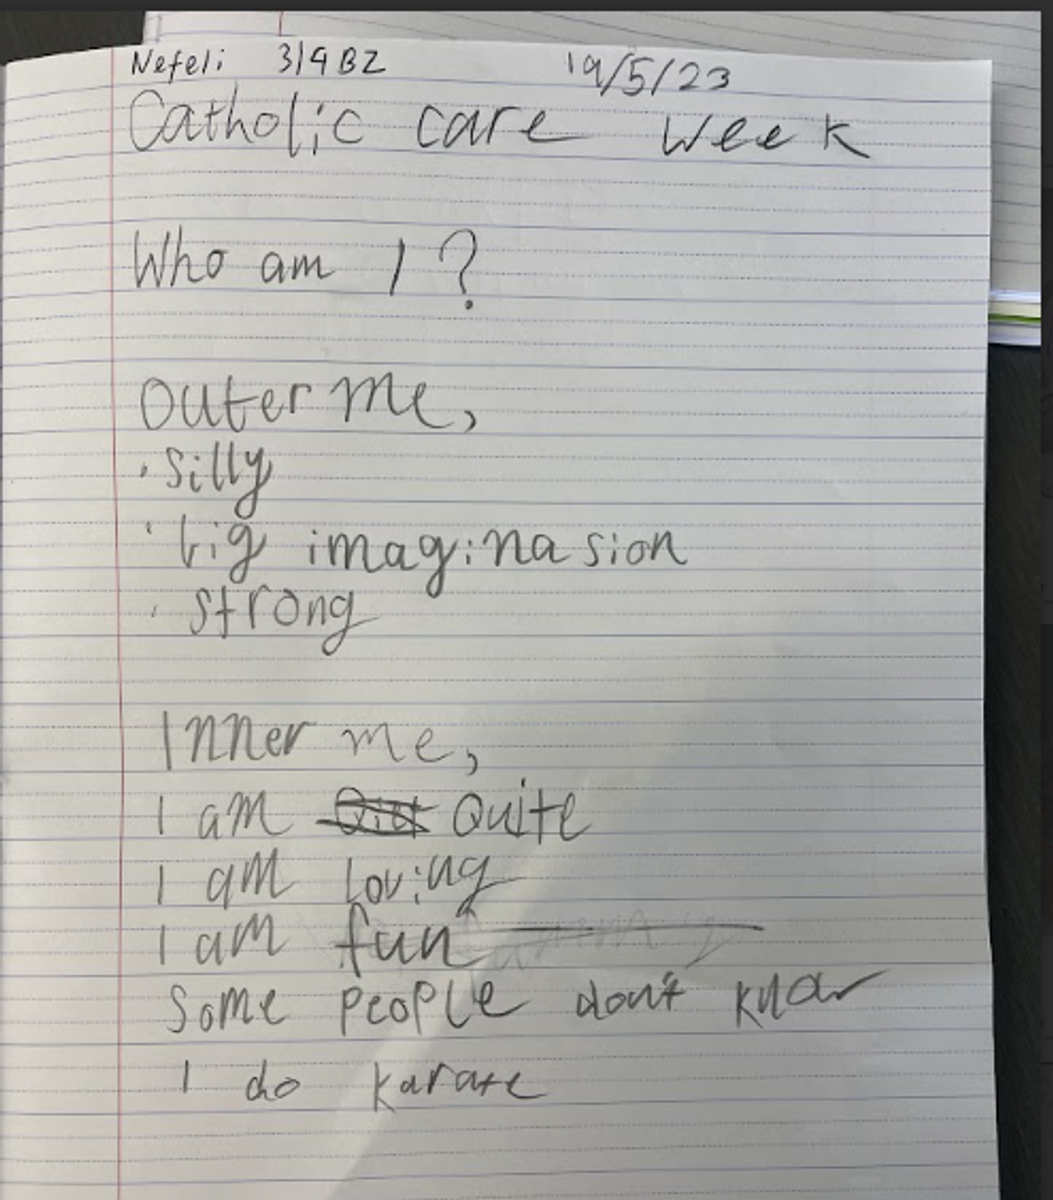 Nefeli 3/4BZ 19/5/23
Catholic care week
Who am I?
outer me,
· silly
· big imaginasion
· strong
Inner me,
I am Quite
I am loving
I am fun
Some people don't know
I do karate